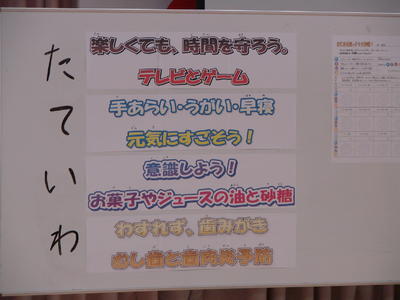 たていわ
楽しくても、時間を守ろう。
テレビとゲーム
手あらい・うがい・早寝
元気にすごそう！
意識しよう！
お菓子やジュースの油と砂糖
わすれず、歯みがき
むし歯と歯肉炎予防